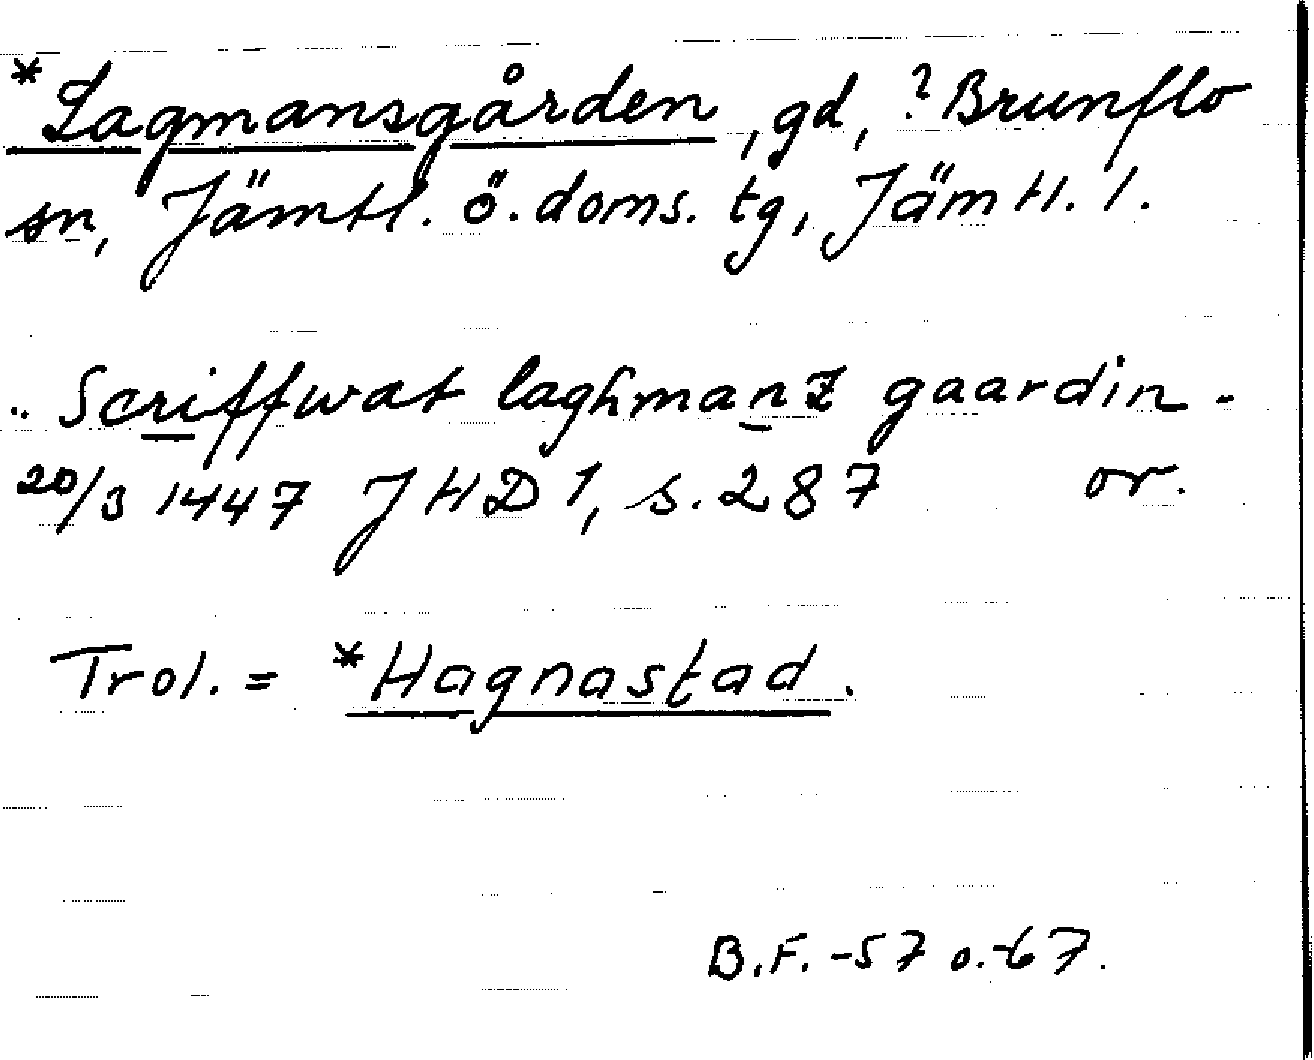 *Lagmansgården, gd, ?Brunflo
sn, Jämtl. ö. doms. tg, Jämtl. l.
.. Scriffwat laghmanz gaardin -
20/3 1447 JHD 1, s. 287 or.
Trol. = *Hagnastad.
B.F. -57 o. -67.